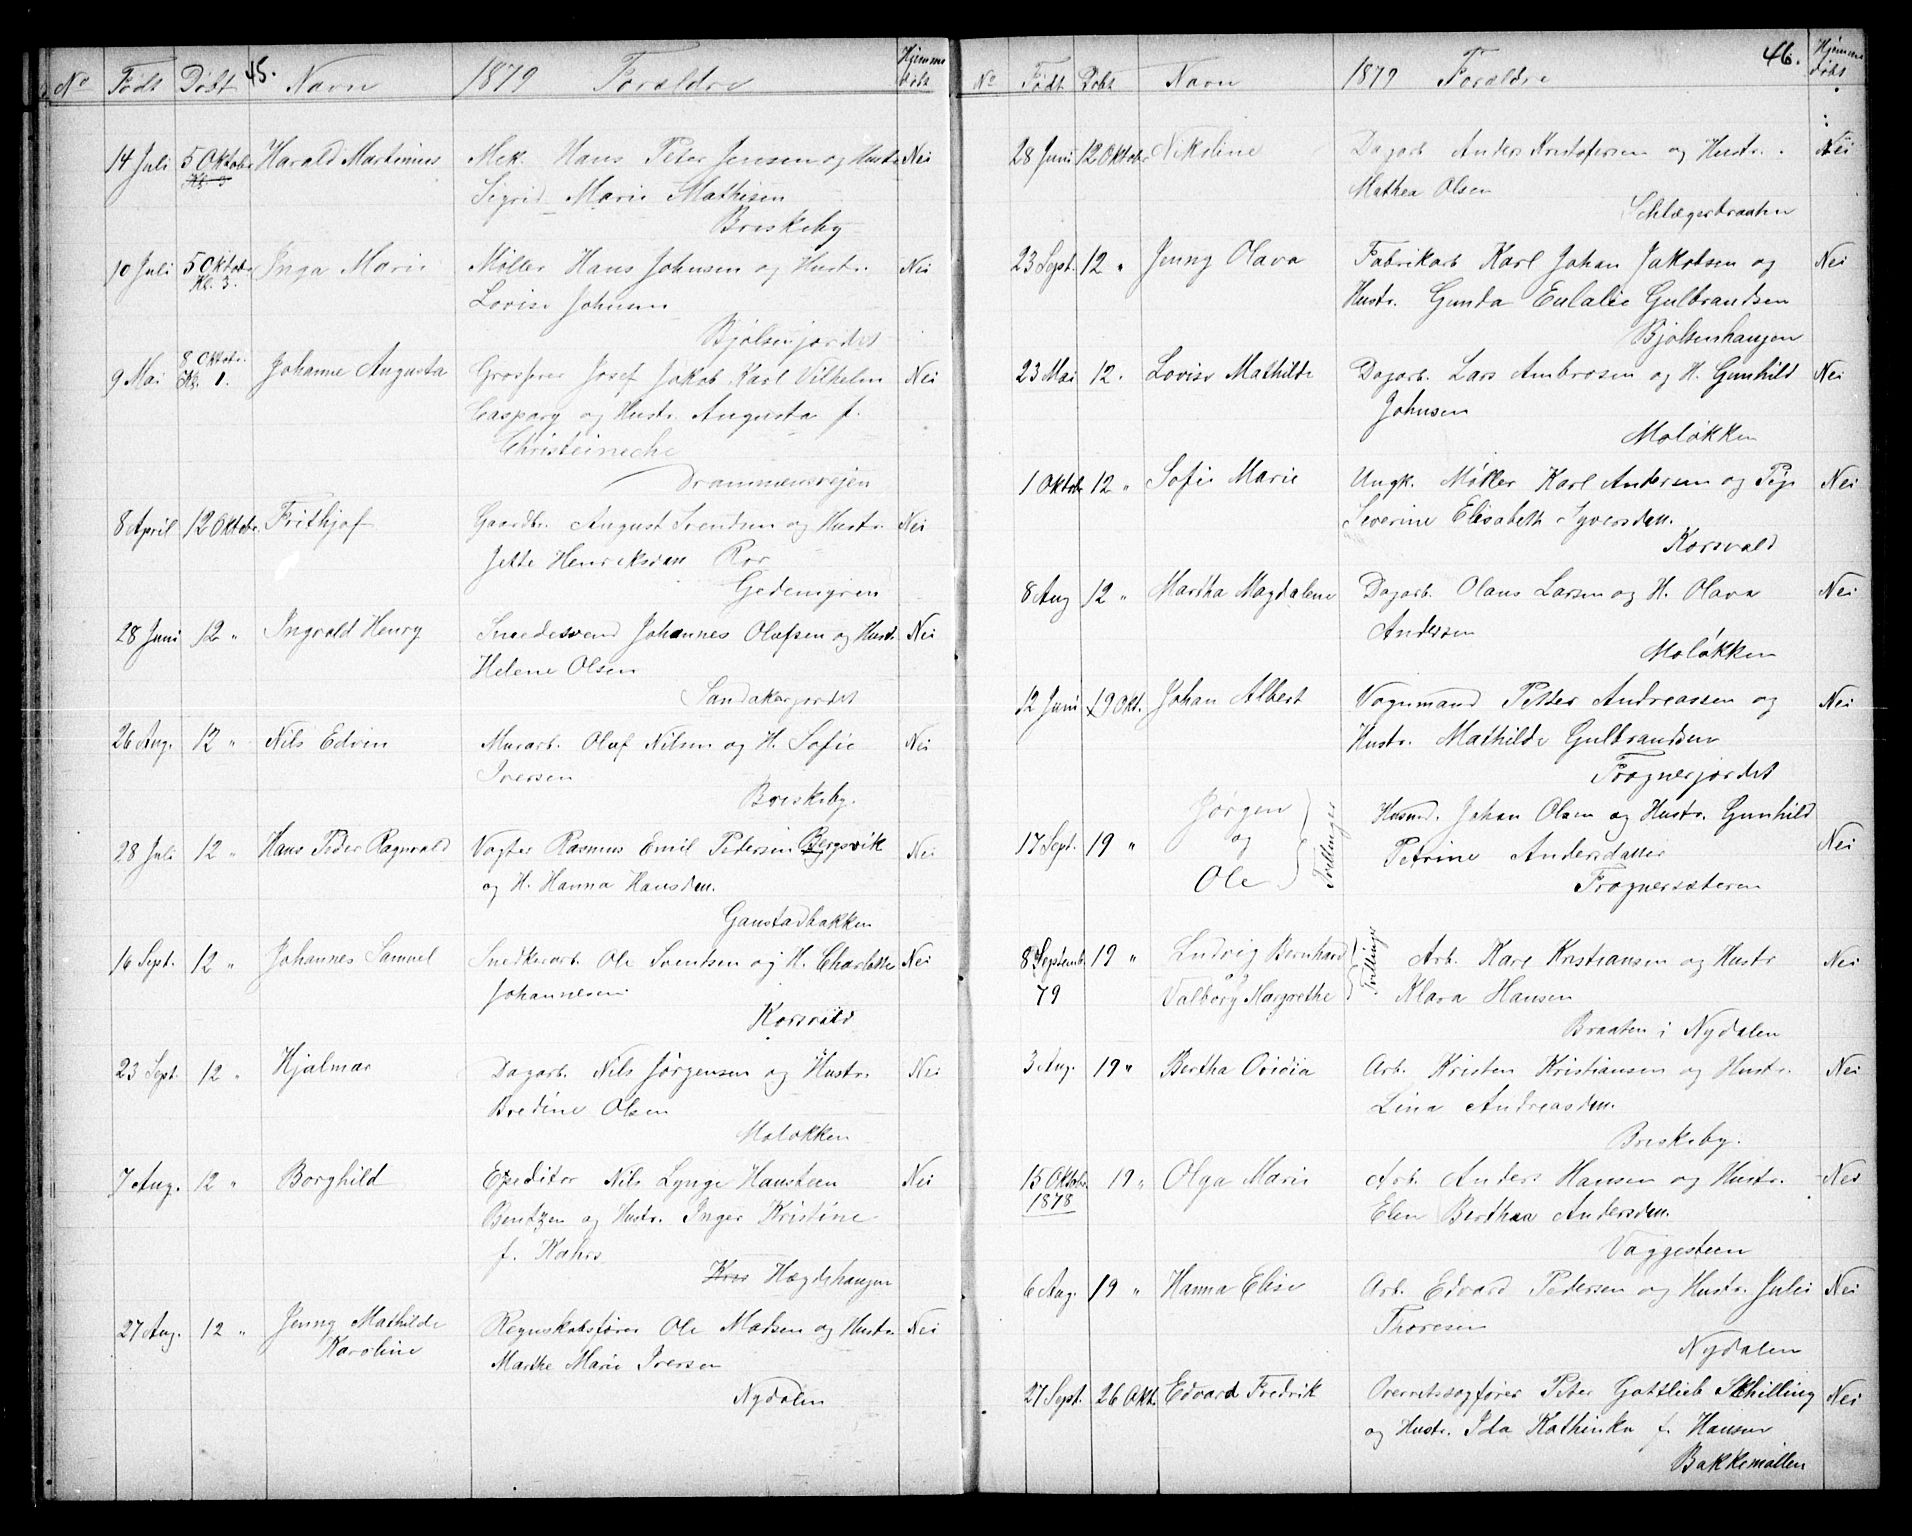 45.
No Født Døbt Navn 1879 Forældre Hjemme døbt
14 Juli 5 Oktobr Harald Martinius Mek. Hans Peter Jensen og Hustr. Nei
Kl. 3
Sigrid Marie Mathisen
Briskeby
10 Juli 5 Oktobr Inga Marie Møller Hans Johnsen og Hustr. Nei
Kl. 3.
Lovise Johnsen
Bjølsenjordet
9 Mai 8 Oktobr. Kl. 1. Johanne Augusta Grosserer Josef Jakob Karl Vilhelm Nei
Caspary og Hustr. Augusta f.
Christeineche
Drammensvejen
8 April 12 Oktobr. Frithjof Gaardbr. August Svendsen og Hustr. Nei
Jette Henriksen Ror
Gedemyren
28 Juni 12 " Ingvald Henry Smedesvend Johannes Olafsen og Hustr. Nei
Helene Olsen
Sandakerjordet
26 Aug. 12 " Nils Edvin Murarb. Olaf Nilsen og H. Sofie Nei
Iversen
Briskeby.
28 Juli 12 " Hans Peder Ragnvald Vogter Rasmus Emil Pedersen Bergsvik Nei
og H. Hanna Hansdtr.
Gaustadbakken
16 Sept. 12 " Johannes Samuel Snedkerarb. Ole Svendsen og H. Charlotte Nei
Johannesen
Korsvold
23 Sept. 12 " Hjalmar Dagarb. Nils Jørgensen og Hustr. Nei
Bredine Olsen
Moløkken
7 Aug. 12 " Borghild Expeditør Nils Lynge Hansteen Nei
Bentzen og Hustr. Inger Kristine
f. Kahrs
Hægdehaugen
27 Aug. 12 " Jenny Mathilde Regnskabsfører Ole Madsen og Hustr. Nei
Karoline Marthe Marie Iversen
Nydalen
46.
No Født Døbt Navn 1879 Forældre Hjemme døbt
28 Juni 12 Oktobr Nikoline Dagarb. Anders Kristofersen og Hustr. Nei
Mathea Olsen
Schlægerbraaten
23 Sept. 12 " Jenny Olava Fabrikarb Karl Johan Jakobsen og Nei
Hustr. Gunda Eulalie Gulbrandsen
Bjølsenhaugen
23 Mai 12. Lovise Mathilde Dagarb. Lars Ambrosen og H. Gunhild Nei
Johnsen
Moløkken
1 Oktobr 12 " Sofie Marie Ungk. Møller Karl Andersen og Pige Nei
Severine Elisabeth Syversdtr.
Korsvold
8 Aug 12 " Martha Magdalene Dagarb. Olaus Larsen og H. Olava Nei
Andersen
Moløkken
12 Juni 19 Okt. Johan Albert Vognmand Petter Andreassen og Nei
Hustr. Mathilde Gulbrandsen
Frognerjordet
17 Sept. 19 " Jørgen og Ole Tvillinger Husmd. Johan Olsen og Hustr. Gunhild Nei
Petrine Andersdatter
Frognersæteren
8 Septembr. 79 19 " Ludvig Bernhard og Valborg Margrethe Tvillinge Arb. Karl Kristiansen og Hustr Nei
Klara Hansen
Braaten i Nydalen
3 Aug. 19 " Bertha Ovidia Arb. Kristen Kristiansen og Hustr. Nei
Lina Andreasdtr.
Briskeby.
15 Oktobr. 1878 19 " Olga Marie Arb. Anders Hansen og Hustr. Nei
Elen Berthea Andersdtr.
Vaggesteen
6 Aug. 19 " Hanna Elise Arb. Edvard Pedersen og Hustr. Julie Nei
Thoresen
Nydalen
27 Sept. 26 Okt. Edvard Fredrik Overretssagfører Peter Gottlieb Schilling Nei
og Hustr. Ida Kathinka f. Hansen
Bakkemøllen